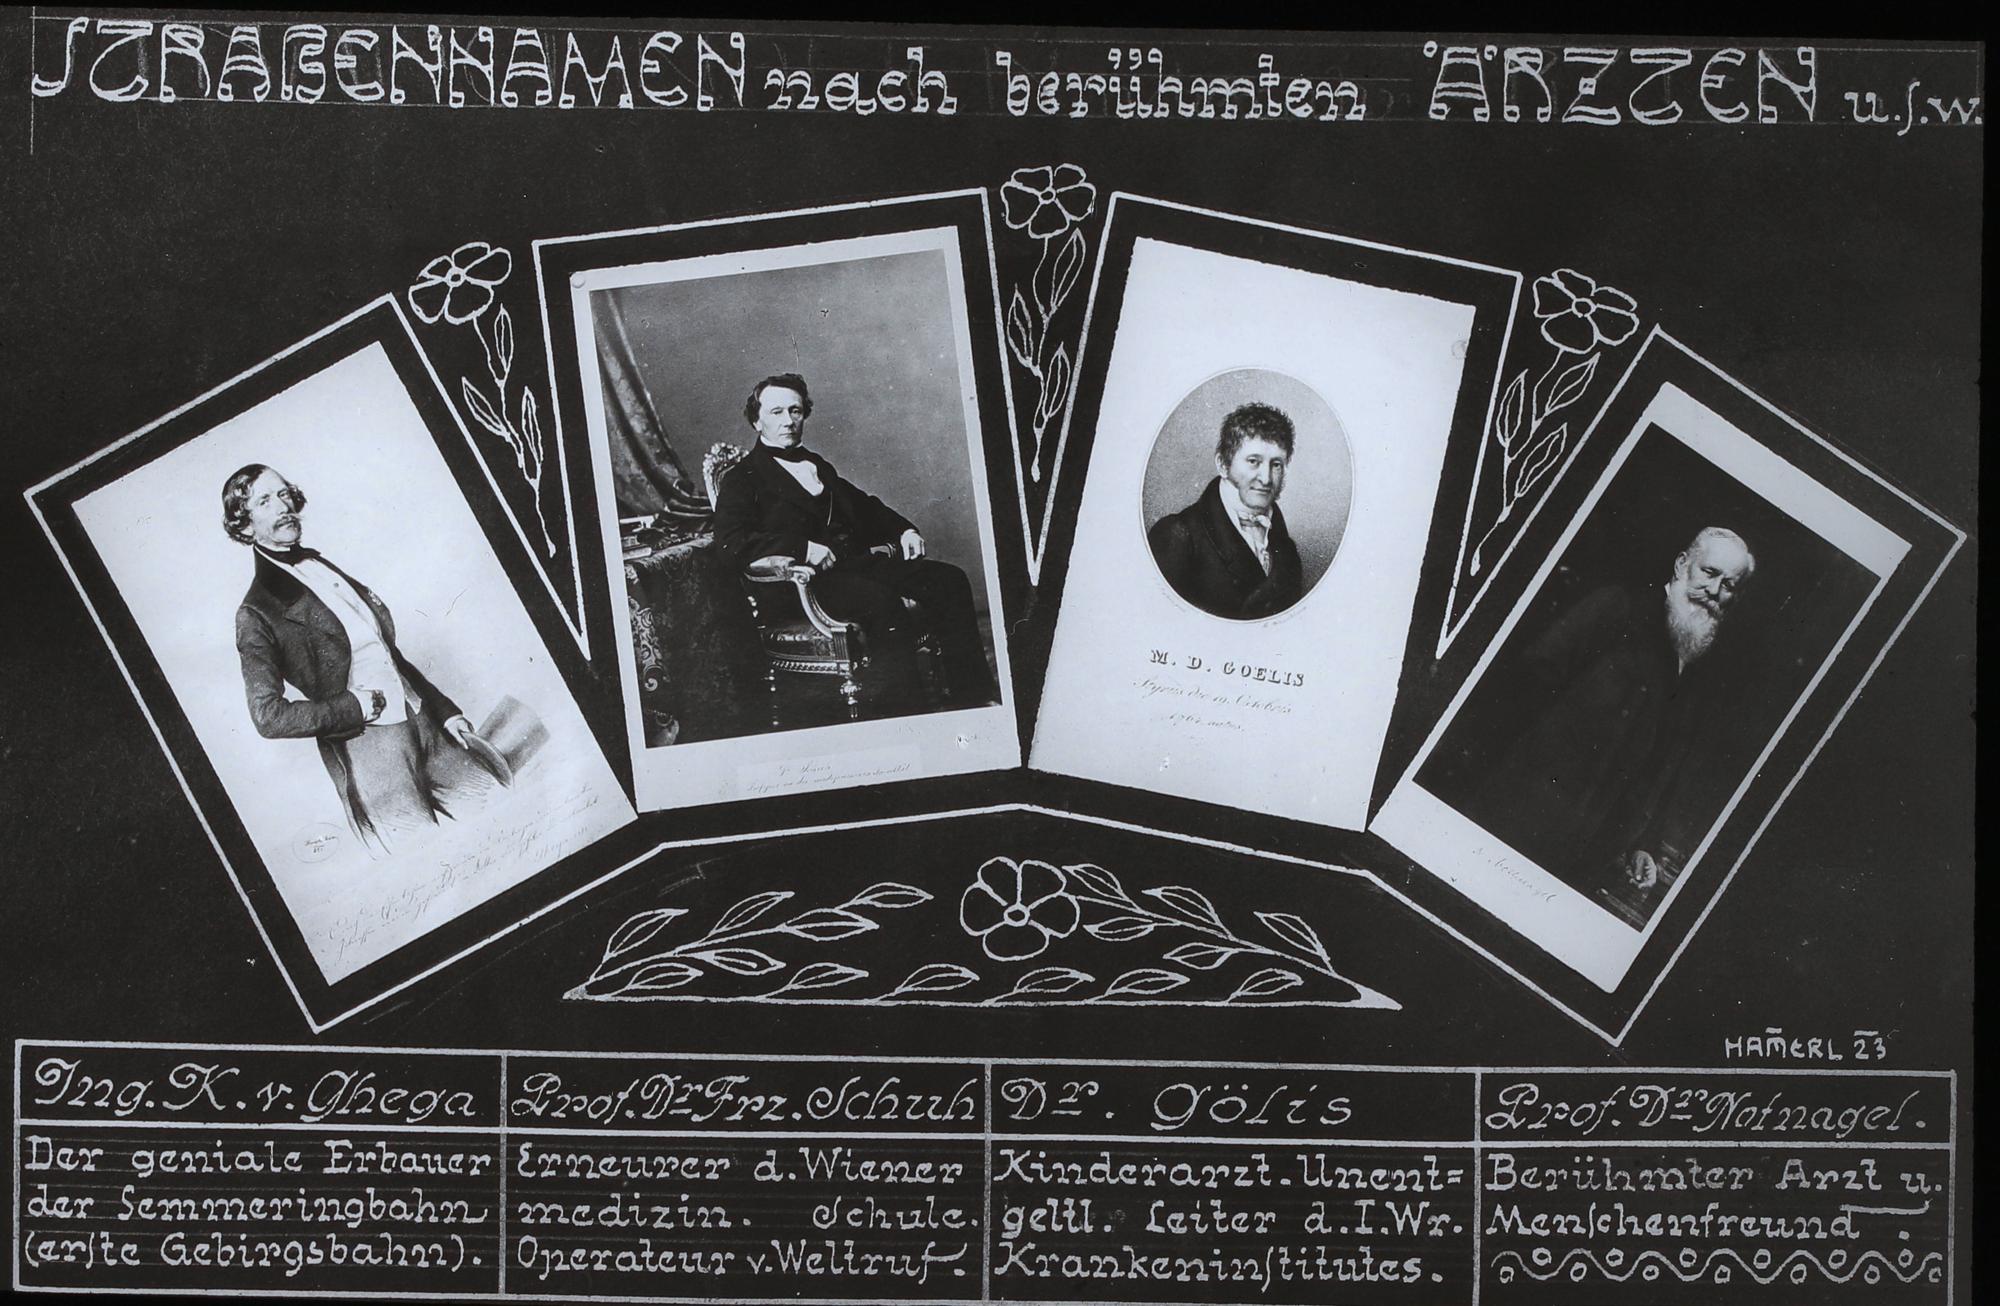 STRAßENNAMEN nach berühmten ÄRZTEN u.s.w.
M. D. GOELIS
HAM̄ERL 23
Ing. K. v. Ghega
Der geniale Erbauer
der Semmeringbahn
(erste Gebirgsbahn).
Prof. Dr Frz. Schuh
Erneurer d. Wiener
medizin. Schule.
Operateur v. Weltruf.
Dr. Gölis
Kinderarzt. Unent=
geltl. Leiter d. I. Wr.
Krankeninstitutes.
Prof. Dr Notnagel.
Berühmter Arzt u.
Menschenfreund.